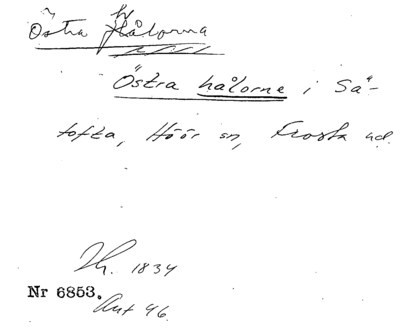 Östra Hålorna
Östra hålorne i Sä-
tofta, Höör sn, Frosta hd.
1834
Nr 6853.
46